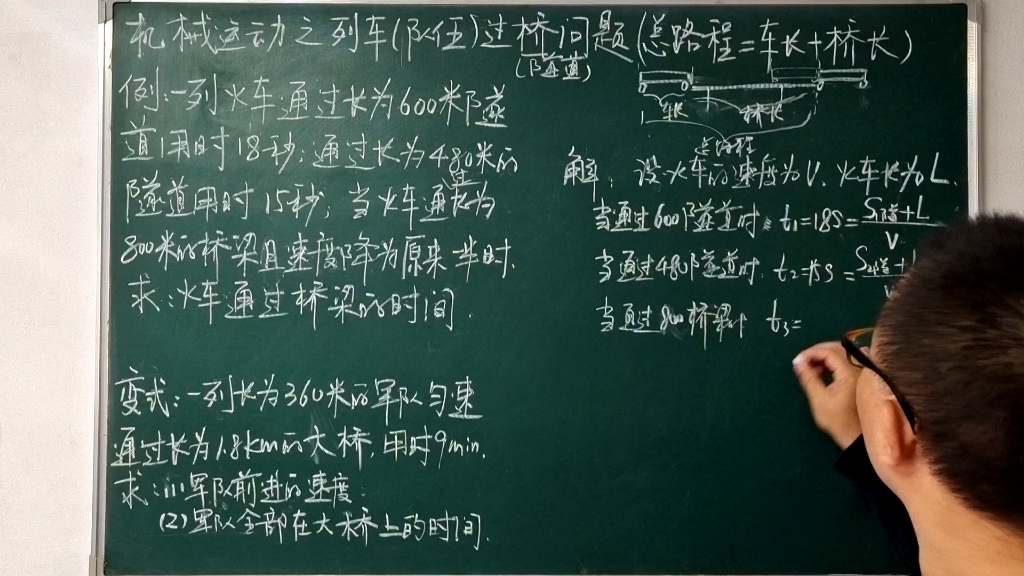 机械运动之列车(队伍)过桥问题(总路程=车长+桥长)
(隧道)
例:一列火车通过长为600米隧
道用时18秒;通过长为480米的
隧道用时15秒;当火车通长为
800米的桥梁且速度降为原来半时.
求:火车通过桥梁的时间.
变式:一列长为360米的军队匀速
通过长为1.8km的大桥,用时9min.
求:(1)军队前进的速度.
(2)军队全部在大桥上的时间.
车长 桥长
总路程
解:设火车的速度为V.火车长为L.
当通过600隧道时 t₁=18S=S₁隧+L/V
当通过480隧道时 t₂=15S=S₂隧+
当通过800桥梁时 t₃=